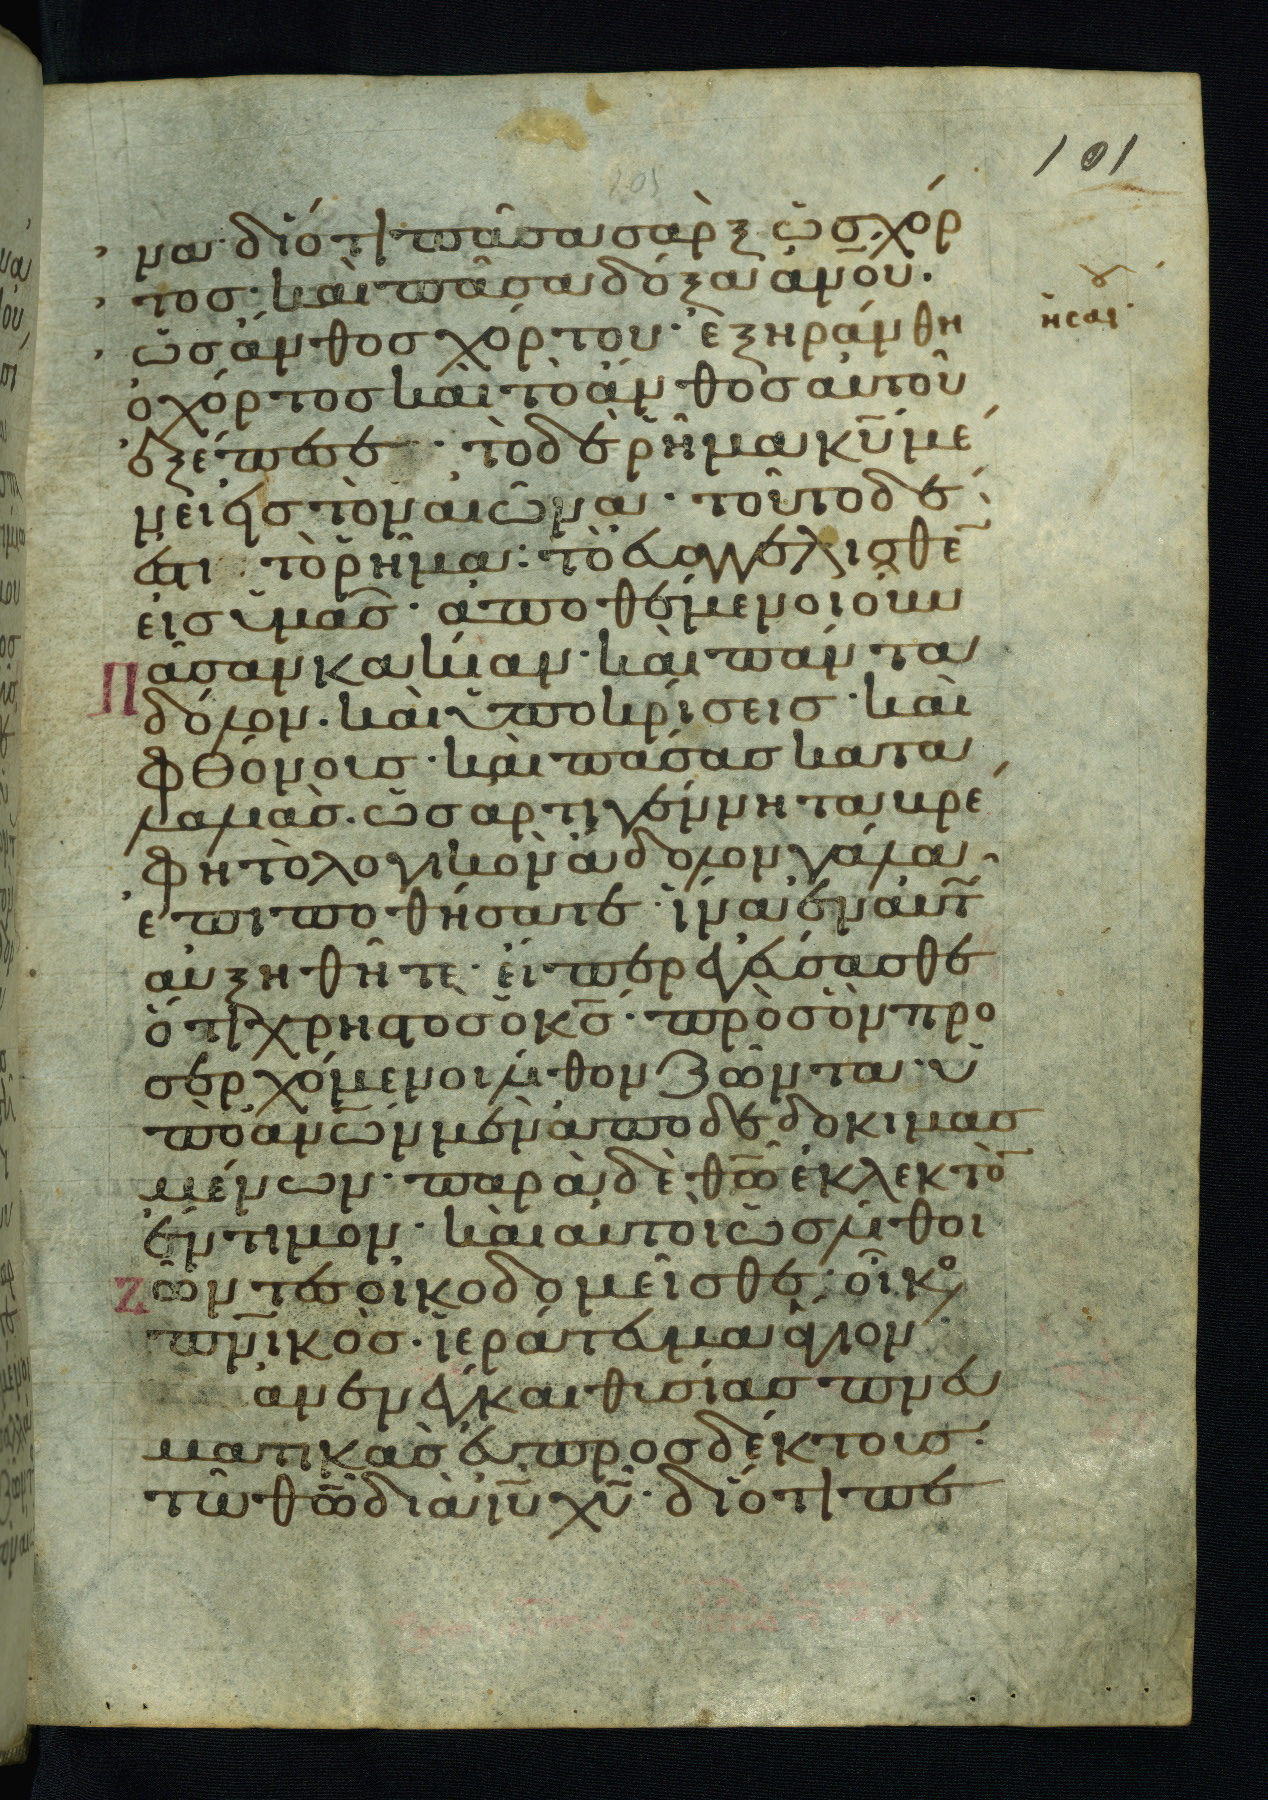 101
να· διότι πᾶσα σὰρξ ὡς χόρ
τος· καὶ πᾶσα δόξα ἀν̅ου·
ὡς ἄνθος χόρτου· ἐξηράνθη
ἠσαι·
ὁ χόρτος καὶ τὸ ἄνθος αὐτοῦ
ἐξέπεσε· τὸ δὲ ῥῆμα κ̅υ μέ
νει εἰς τὸν αἰῶνα· τοῦτο δέ
ἐστι τὸ ῥῆμα· τὸ εὐαγγελισθε̅
εἰς ὑμᾶς· ἀποθέμενοι οὖν
Πᾶσαν κακίαν· καὶ πάντα
δόλον· καὶ ὑποκρίσεις· καὶ
φθόνοις· καὶ πάσας κατα
λαλιὰς· ὡς ἀρτιγέννητα βρέ
φη τὸ λογικὸν ἄδολον γάλα
ἐπιποθήσατε· ἵνα ἐν αὐτ̅
αὐξηθῆτε· εἴπερ ἐγεύσασθε
ὅτι χρηστὸς ὁ κ̅ς· πρὸς ὃν προ
σερχόμενοι λίθον ζῶντα· ὑ
πὸ ἀν̅ων μὲν ἀποδεδοκιμασ
μένων· παρὰ δὲ θ̅ω ἐκλεκτὸ̅
ἔντιμον· καὶ αὐτοὶ ὡς λίθοι
Ζῶντες οἰκοδομεῖσθε· οἶκο
πν̅ικὸς· ἱεράτευμα ἅγιον
ἀνενέγκαι θυσίας πνευ
ματικὰς εὐπροσδέκτοις
τῷ θ̅ω διὰ ι̅υ χ̅υ· διότι πε